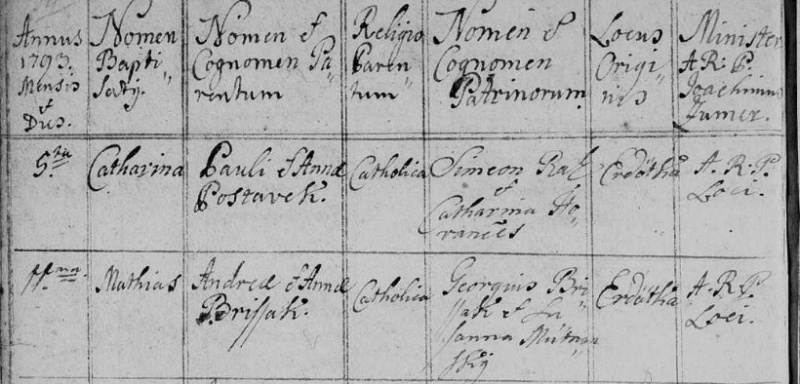 Annus
1793.
Mensis
et
Dies.
Nomen
Bapti
saty.
Nomen &
Cognomen Pa
rentum
Religio
Paren
tum
Nomen &
Cognomen
Patrinorum
Locus
Origi
nis
Minister
A. R. P.
Joachimus
5ta
Catharina
Pauli & Annæ
Postavek.
Catholica
Simeon
&
Catharina Ho
Erdötka
A. R. P.
Loci.
Mathias
Andreæ & Annæ
Brissak.
Catholica
Georgius Bri
ssak & Su
sanna
Erdötka
A. R. P.
Loci.